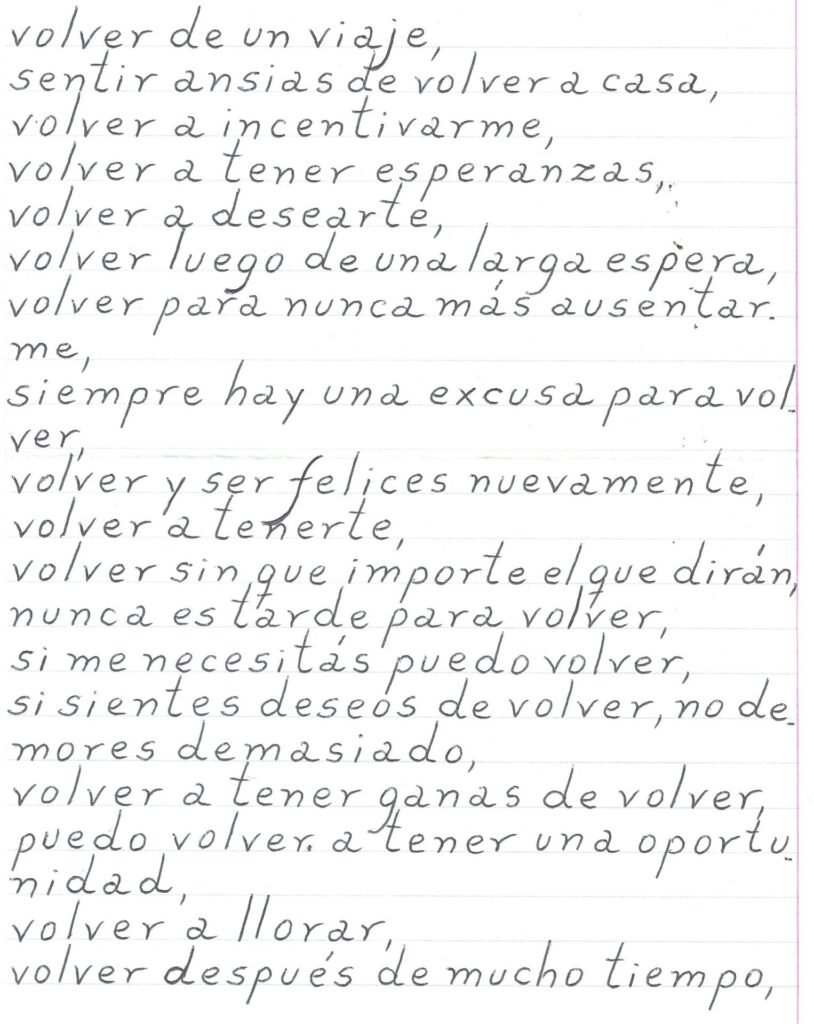 volver de un viaje,
sentir ansias de volver a casa,
volver a incentivarme,
volver a tener esperanzas,
volver a desearte,
volver luego de una larga espera,
volver para nunca más ausentar-
me,
siempre hay una excusa para vol-
ver,
volver y ser felices nuevamente,
volver a tenerte,
volver sin que importe el que dirán,
nunca es tarde para volver,
si me necesitás puedo volver,
si sientes deseos de volver, no de-
mores demasiado,
volver a tener ganas de volver,
puedo volver a tener una oportu-
nidad,
volver a llorar,
volver después de mucho tiempo,